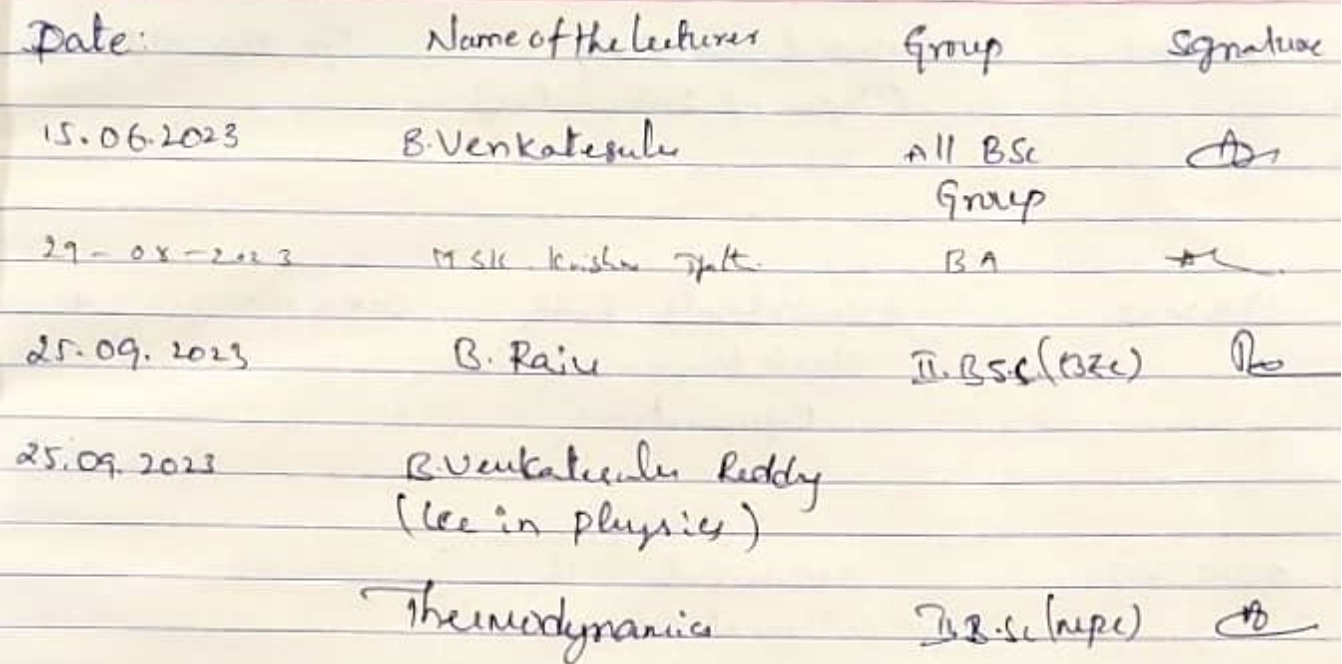 Date: Name of the Lecturer Group Signature
15.06.2023 B. Venkatesulu All BSc
Group
29-08-2023 MSK Krishna BA
25.09.2023 B. Raju II. B.S.C (BZC)
25.09.2023 B. Venkatesulu Reddy
(Lec in physics)
Thermodynamics II B.Sc (mpc)